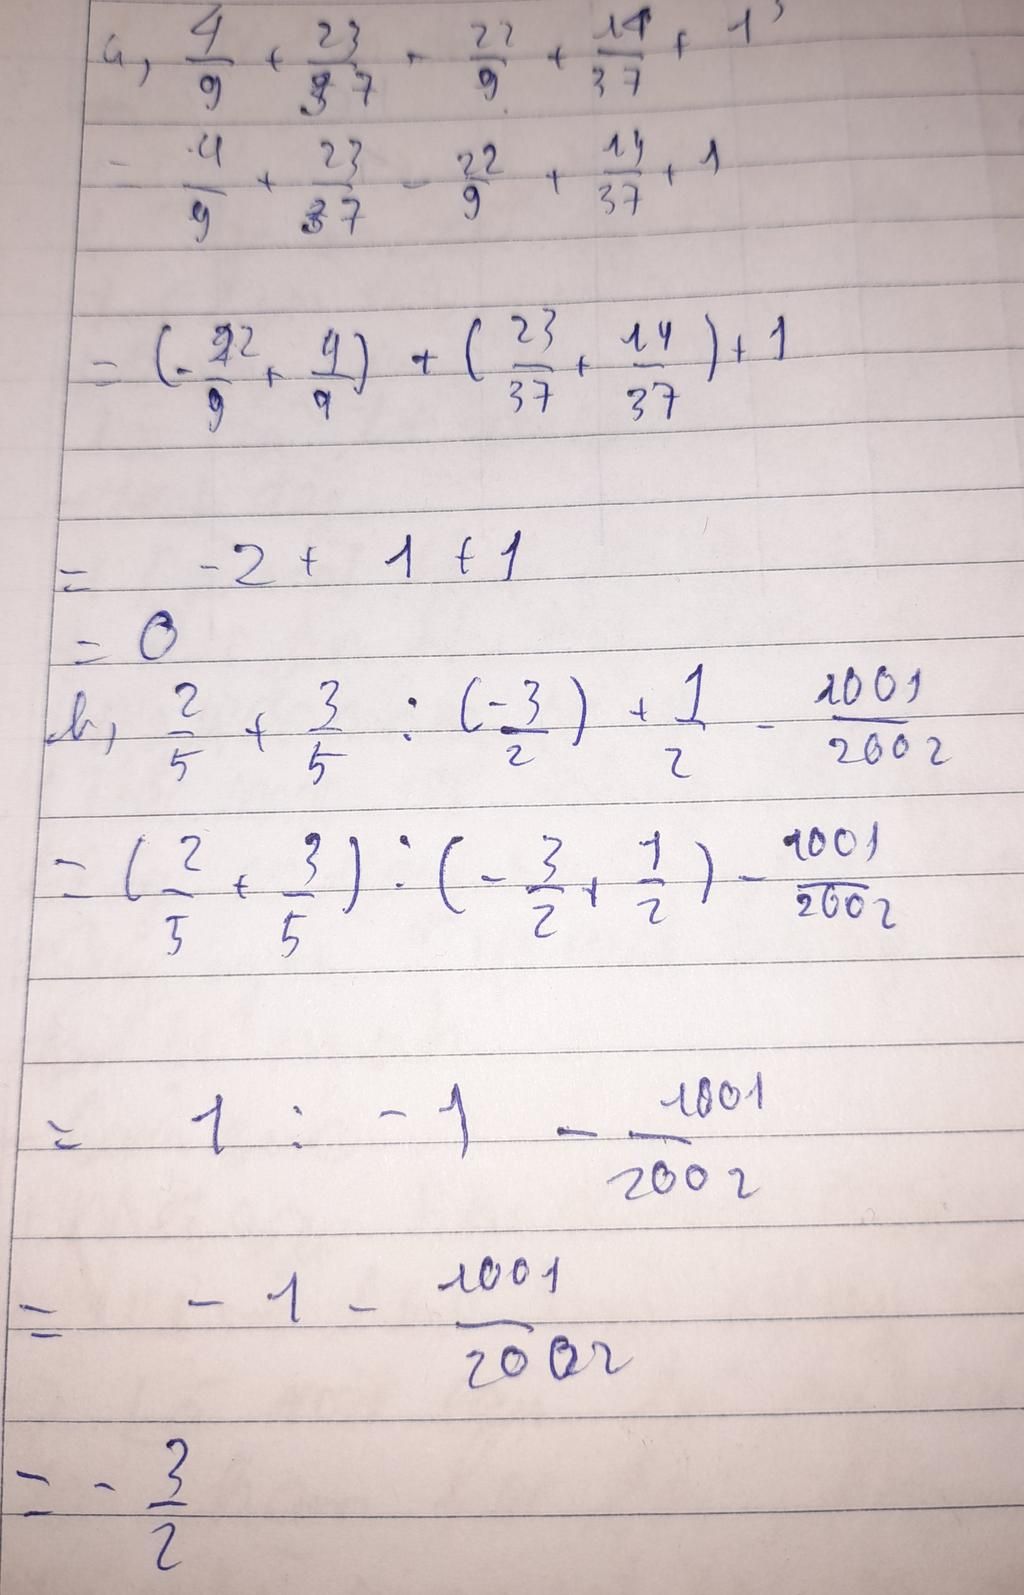 a, 4/9 + 23/37 - 22/9 + 14/37 + 1
= 4/9 + 23/37 - 22/9 + 14/37 + 1
= (-22/9 + 4/9) + (23/37 + 14/37) + 1
= -2 + 1 + 1
= 0
b, 2/5 + 3/5 : (-3/2) + 1/2 - 1001/2002
= (2/5 + 3/5) : (-3/2 + 1/2) - 1001/2002
= 1 : -1 - 1001/2002
= -1 - 1001/2002
= -3/2